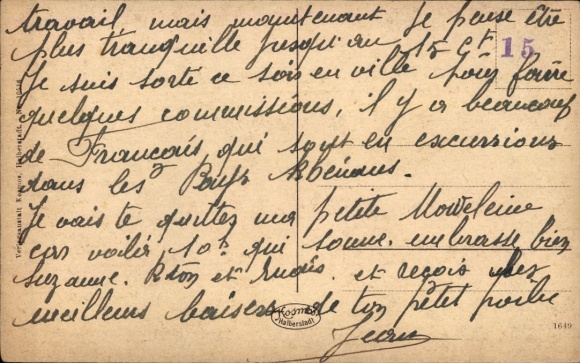 travail mais maintenant je pense être
plus tranquille jusqu'au 15 Ct
15
Je suis sorti ce soir en ville pour faire
quelques commissions, il y a beaucoup
de Français qui sont en excursions
dans les Pays Rhénans.
Je vais te quitter ma petite Madeleine
car voilà 10h qui sonne. embrasse bien
Suzanne. et et reçois mes
meilleurs baisers de ton petit poilu
Jean
Kosmos
Halberstadt
1649